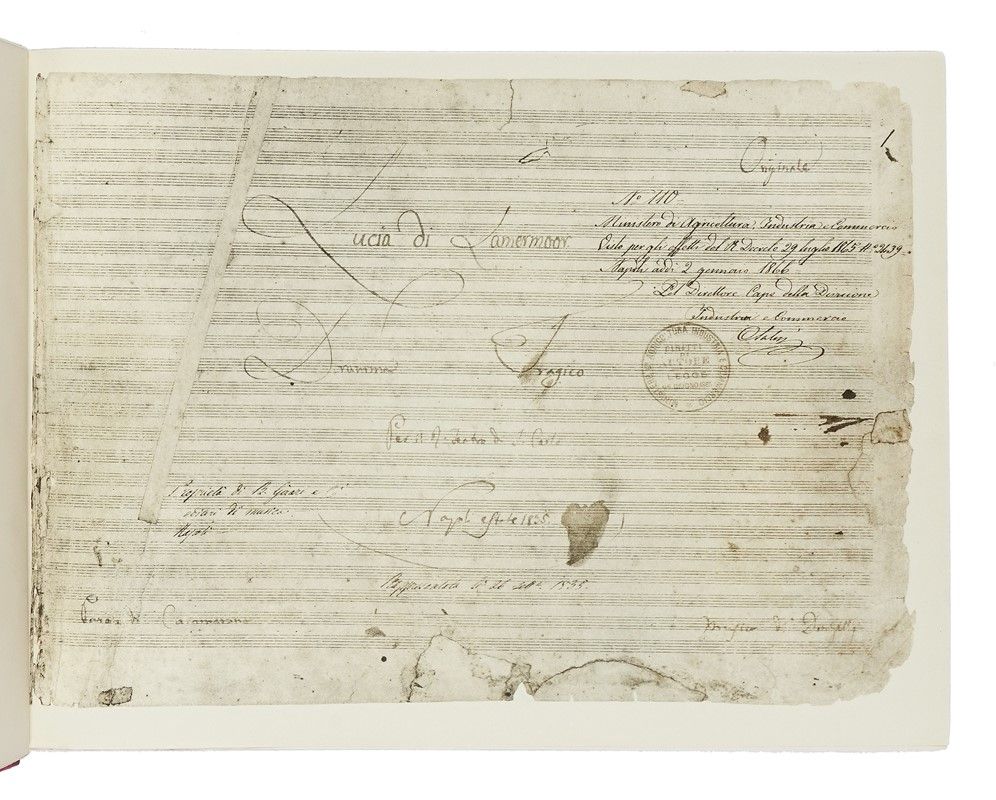 Originale
N.º 110
Ministero di Agricoltura, Industria e Commercio
Visto per gli effetti del R. Decreto 29 luglio 1865 N.º 2439.
Napoli addì 2 gennaio 1866
Pel Direttore Capo della Divisione
Industria e Commercio
Lucia di Lamermoor
Dramma Tragico
DIRITTI
AUTORE
LEGGE
Per il R. Teatro di S. Carlo
Proprietà di B. Girard e C.i
editori di musica
Napoli
Napoli estate 1835
Rappresentata 26 7bre 1835
Parole di Camerano
Musica di Donizetti